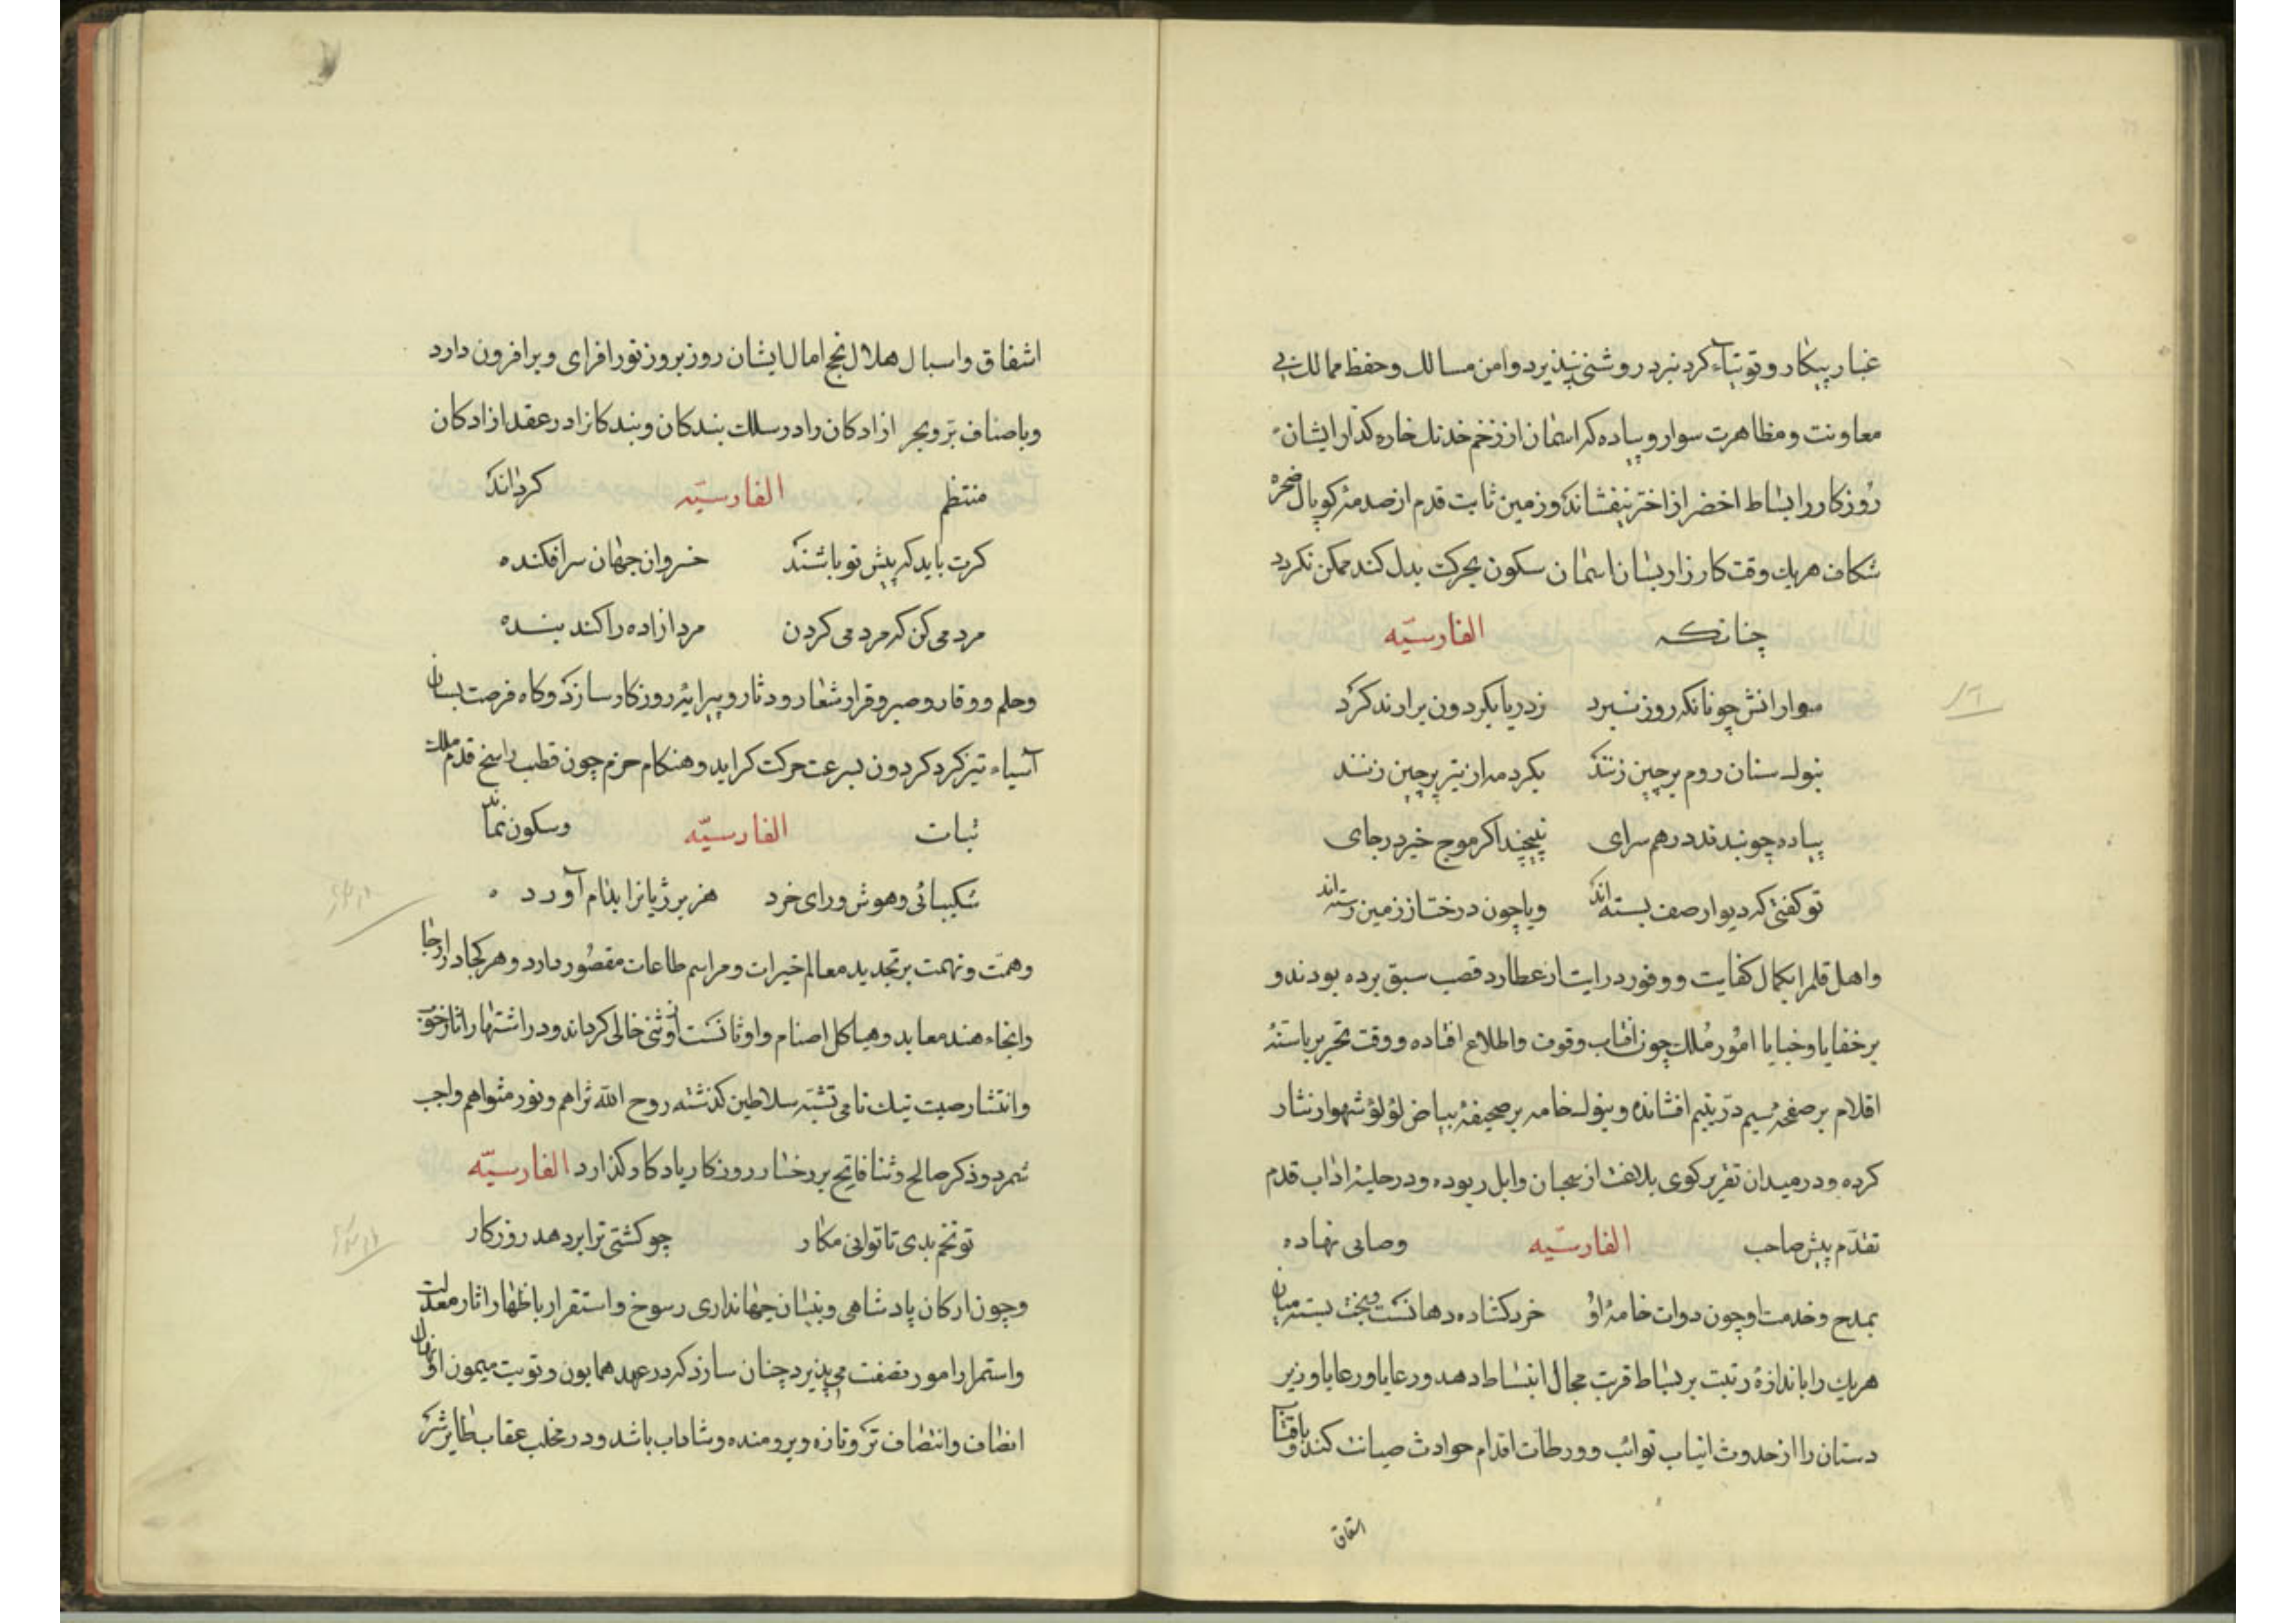 غبار پیکار و توتیاء کرد نبرد روشنی نپذیرد و امن مسالک و حفظ ممالک بی
معاونت و مظاهرت سوار و پیاده که اسمان از زخم خدنک خاره کذار ایشان
روزکار را بساط اخضر از اختر بیفشاند و زمین ثابت قدم از صدمهٔ کوپال صخره
شکاف هریک وقت کارزار بسان اسمان سکون بحرکت بدل کند ممکن نکردد
چنانکه الفارسیّه
سوارانش چونانکه روز نبرد زدریا بکردون برارند کرد
بنوک سنان روم برچین زنند بکرد مه از تیر پرچین زنند
پیاده چو بندند درهم سرای نپیچند اکر موج خیزد زجای
تو کفتی که دیوار صف بسته‌اند ویا چون درخت از زمین رسته‌اند
واهل قلم را بکمال کفایت و وفور درایت از عطارد قصب سبق برده بودند و
بر خفایا و خبایا امور ملک چون افتاب وقوف و اطلاع افتاده و وقت تحریر باسنهٔ
اقلام بر صفحهٔ سیم درّ یتیم افشانده و بنوک خامه بر صحیفهٔ بیاض لؤلؤ شهوار نثار
کرده و در میدان تقریر کوی بلاغت از سحبان وایل ربوده و در حلیهٔ اداب قدم
تقدّم پیش صاحب الفارسیّه وصابی نهاده
بمدح و خدمت او چون دوات خامهٔ او خرد کشاده دهانست و بخت بسته میان
هریک را باندازهٔ رتبت بر بساط قربت مجال انبساط دهد و رعایا و رعایا و زیر
دستان را از حدوث انیاب نوائب و ورطات اقدام حوادث صیانت کند و بافتاب
اشفاق
اشفاق و اسبال هلال نجح امال ایشان روز بروز نور افزای و برافزون دارد
وباصناف برّ و بحر ازادکان را در سلک بندکان و بندکانرا در عقد ازادکان
منتظم الفارسیّه کرداند
کرت باید که پیش تو باشند خسروان جهان سرافکنده
مردمی کن که مردمی کردن مرد ازاده را کند بنده
وحلم و وقار و صبر و قرار شعار و دثار و پیرایهٔ روزکار سازد و کاه فرصت بسان
آسیاء تیز کرد کردون بسرعت حرکت کراید و هنکام حزم چون قطب راسخ قدم ملک
ثبات الفارسیّه وسکون نماید
شکیبائی و هوش و رای خرد هزبر ژیانرا بدام آورد
وهمّت و نهمت بر تجدید معالم خیرات و مراسم طاعات مقصور دارد و هر کجا در ارجا
وانحاء هند معابد و هیاکل اصنام و اوثانست از وثنی خالی کرداند و در اشتهار اثار خوب
وانتشار صیت نیک نامی تشبّه سلاطین کذشته روح الله ثراهم و نور مثواهم واجب
شمرد و ذکر صالح و ثنا فایح بر رخسار روزکار یادکار کذارد الفارسیّه
تو تخم بدی تا توانی مکار چو کشتی ترا بر دهد روزکار
وچون ارکان پادشاهی و بنیان جهانداری رسوخ و استقرار باظهار اثار معدلت
واستمرار امور نصفت می‌پذیرد چنان سازد که در عهد همایون و نوبت میمون او نهال
انصاف و انتصاف تر و تازه و برومنده و شاداب باشد و در مخلب عقاب طایر شرّ